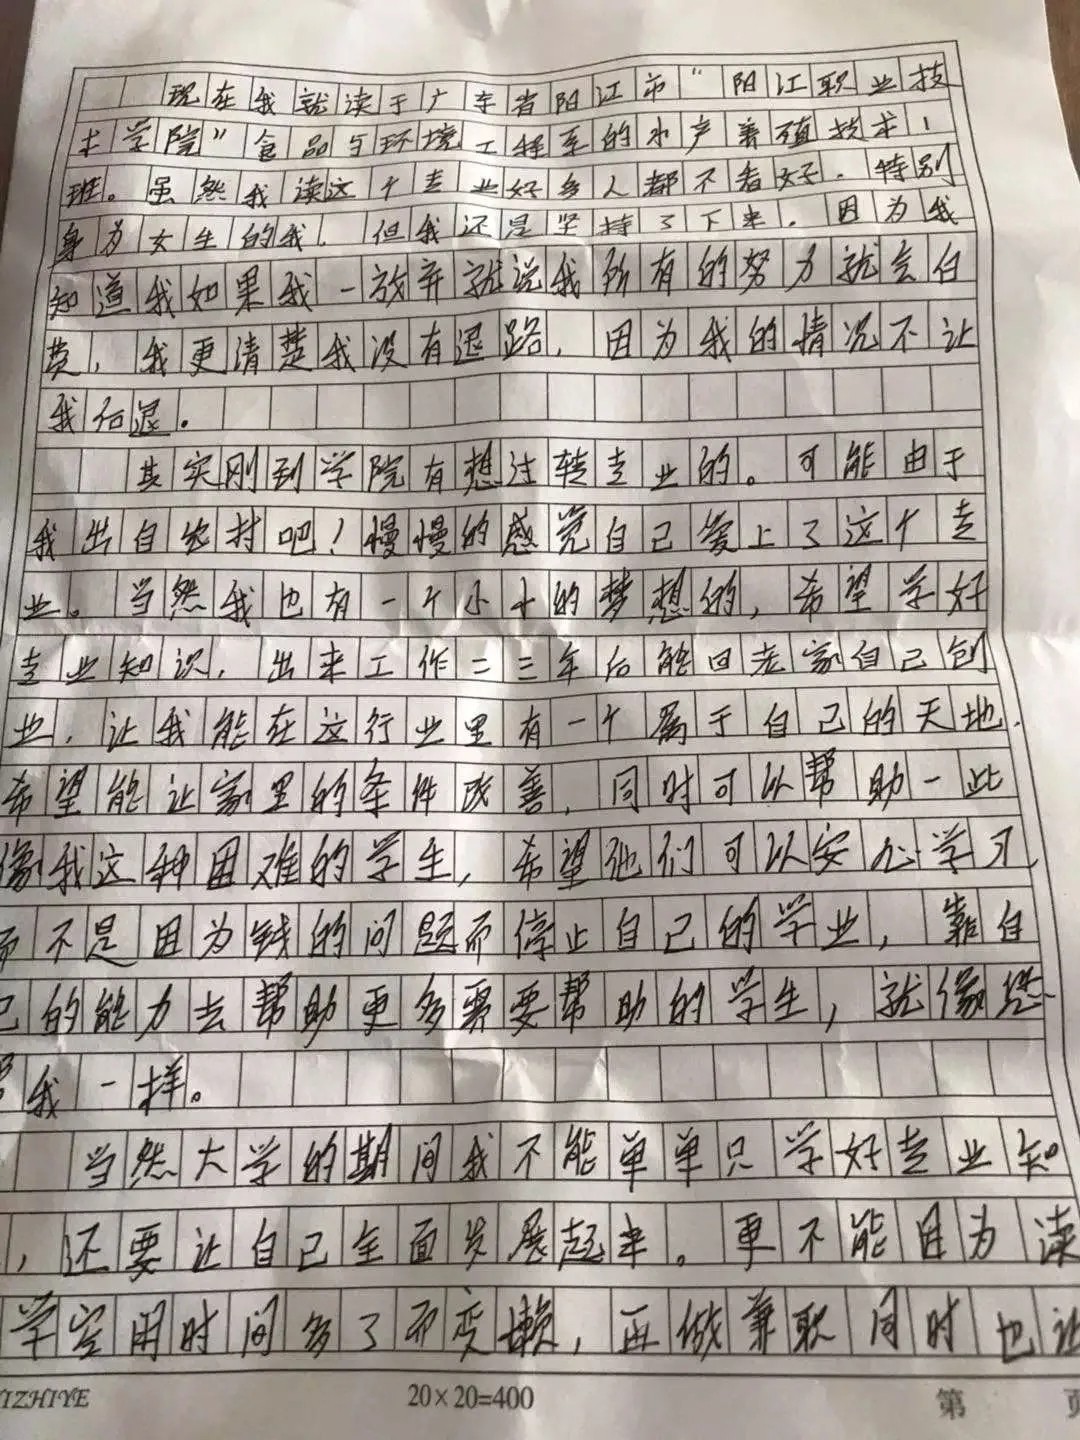 现在我就读于广东省阳江市“阳江职业技
术学院”食品与环境工程系的水产养殖技术1
班。虽然我读这个专业好多人都不看好．特别
身为女生的我．但我还是坚持了下来．因为我
知道我如果我一放弃就说我所有的努力就会白
费，我更清楚我没有退路．因为我的情况不让
我后退。
其实刚到学院有想过转专业的。可能由于
我出自农村吧！慢慢的感觉自己爱上了这个专
业。当然我也有一个小小的梦想的，希望学好
专业知识．出来工作二三年后能回老家自己创
业．让我能在这行业里有一个属于自己的天地．
希望能让家里的条件改善．同时可以帮助一些
像我这种困难的学生，希望他们可以安心学习，
而不是因为钱的问题而停止自己的学业，靠自
己的能力去帮助更多需要帮助的学生，就像您
我一样。
当然大学的期间我不能单单只学好专业知
，还要让自己全面发展起来。更不能因为读
学空闲时间多了而变懒，再做兼职同时也让
IZHIYE 20×20=400 第 页